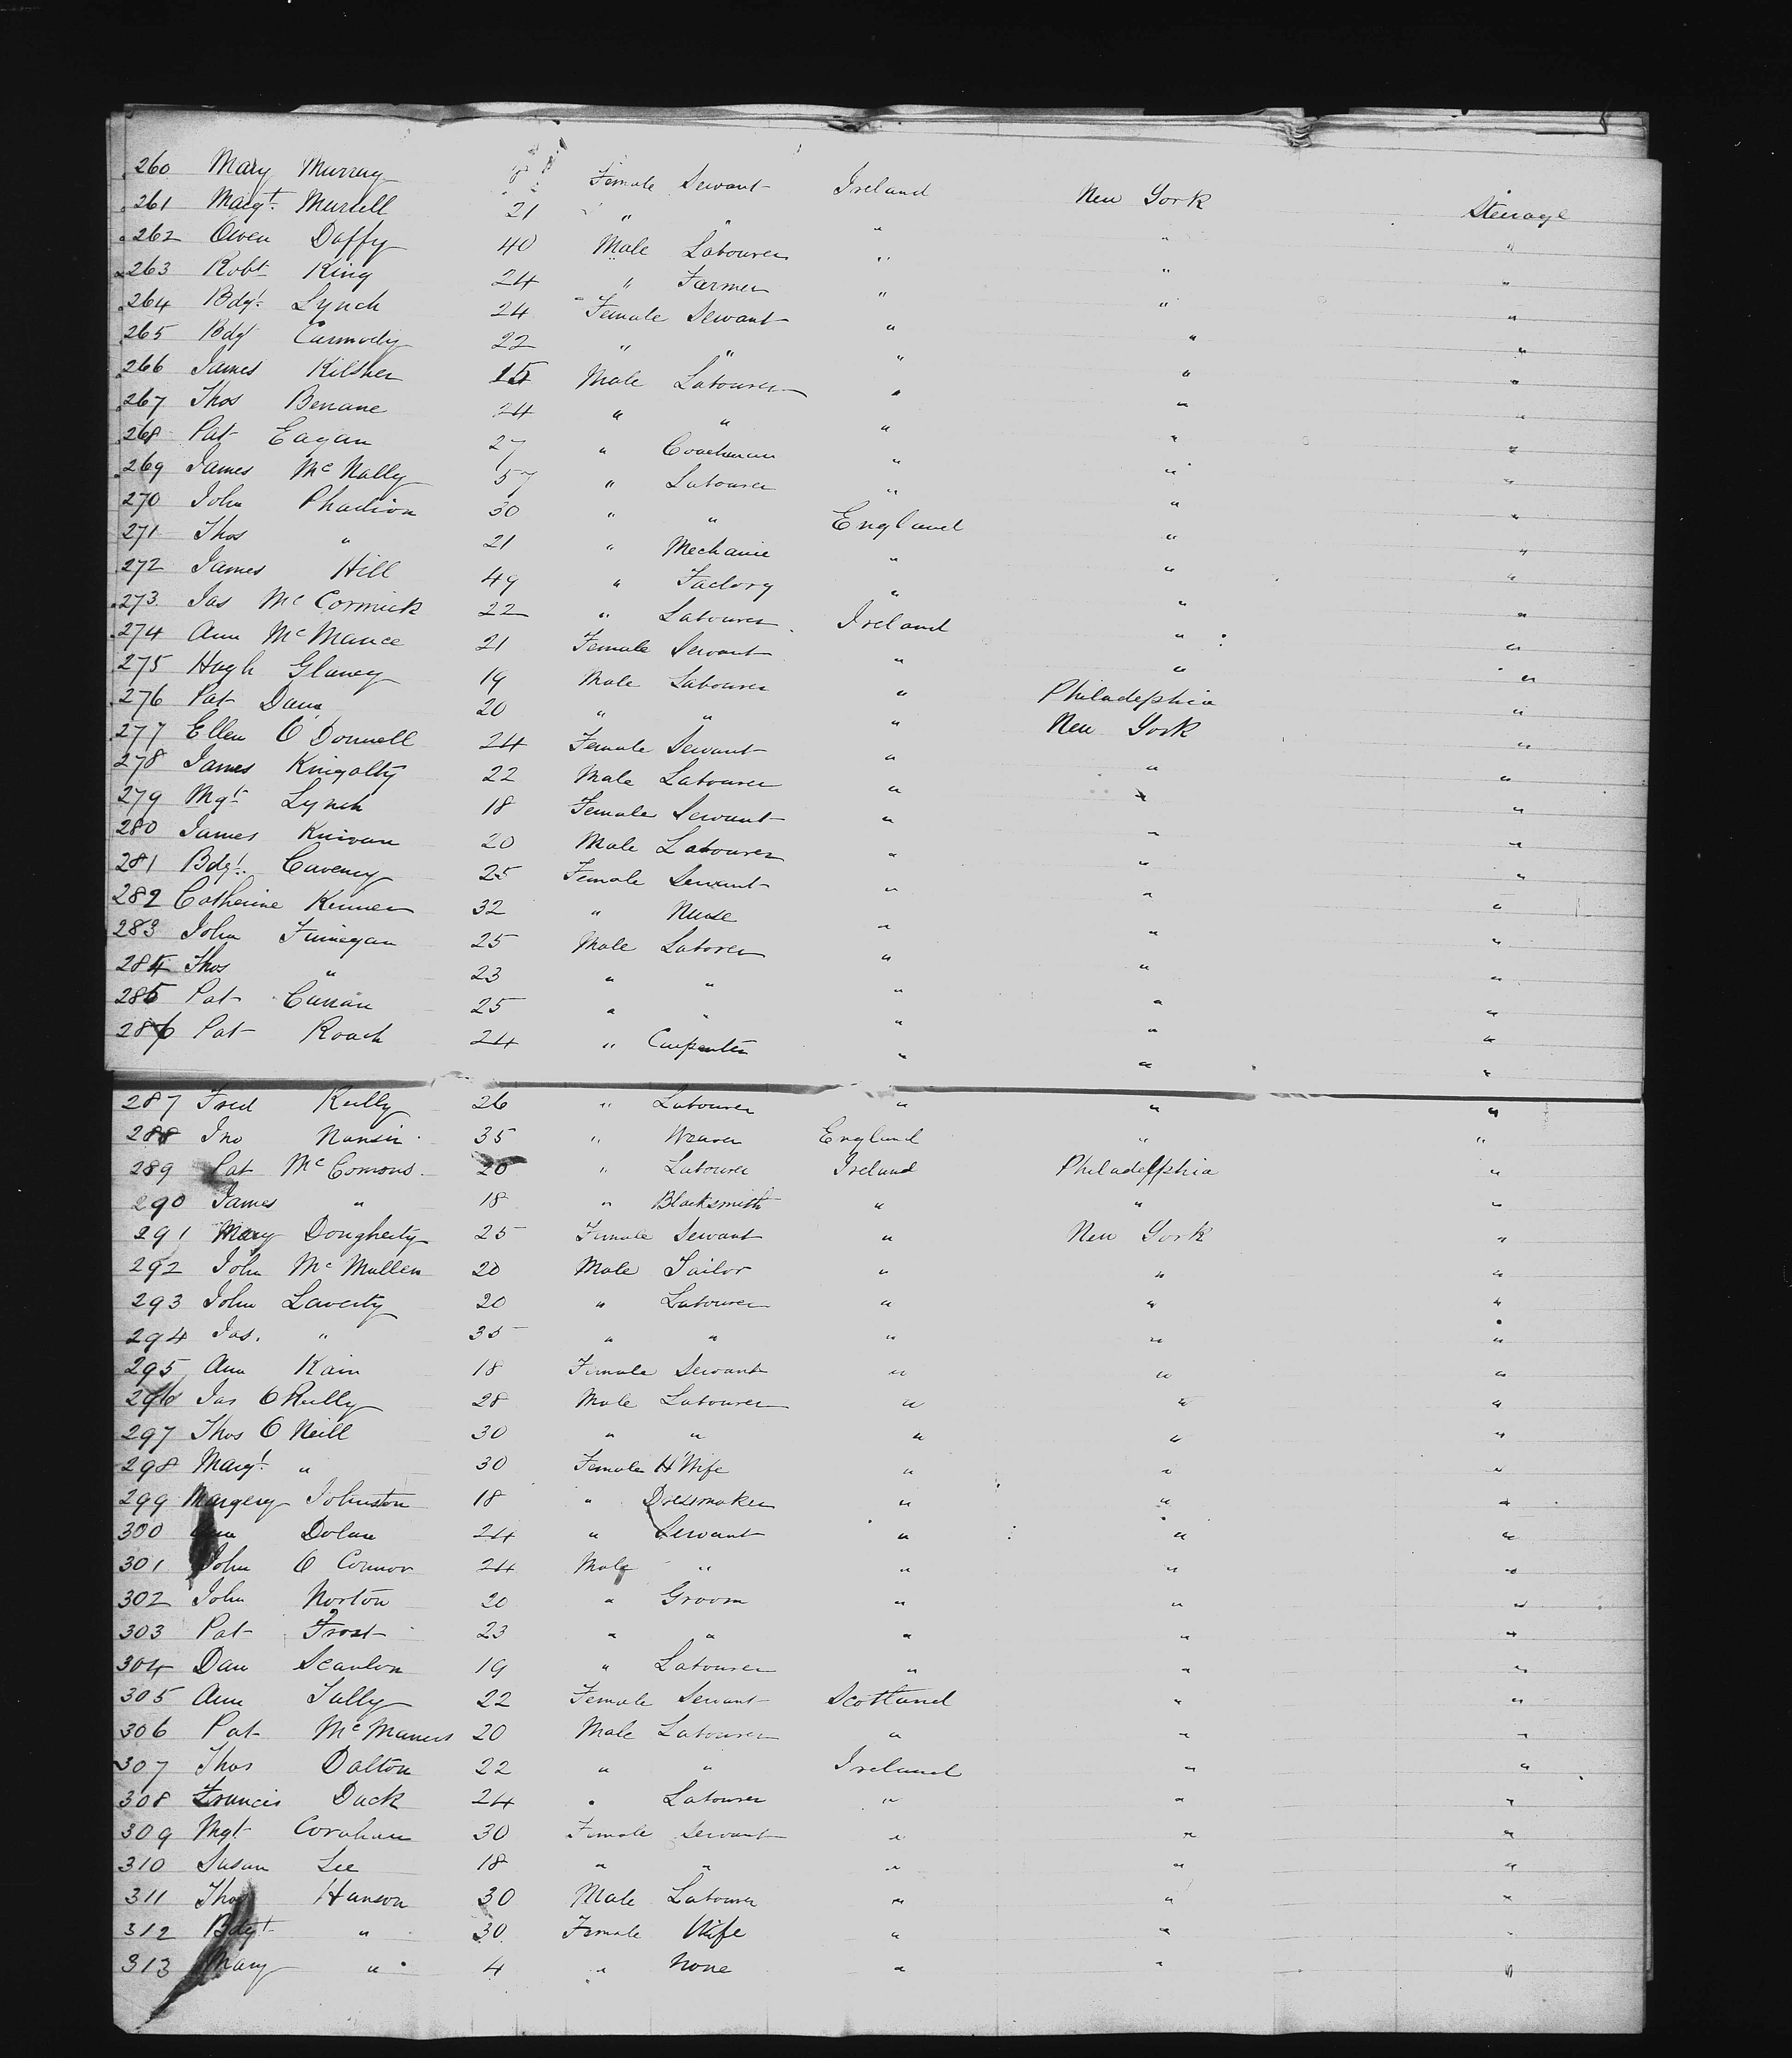 260 Mary Murray Female Servant Ireland New York Steerage
261 Margt. Martell 21 " " " " "
262 Owen Daffy 40 Male Labourer " " "
263 Robt King 24 " Farmer " " "
264 Bdgt. Lynch 24 Female Servant " " "
265 Bdgt Carmody 22 " " " " "
266 James Kilsher 15 Male Labourer " " "
267 Thos Benane 24 " " " " "
268 Pat Eagan 27 " Coachman " " "
269 James McNally 57 " Labourer " " "
270 John Phadion 30 " " England " "
271 Thos " 21 " Mechanic " " "
272 James Hill 49 " Factory " " "
273 Jas McCormick 22 " Labourer Ireland " "
274 Ann McMance 21 Female Servant " " "
275 Hugh Glancy 19 Male Labourer " Philadelphia "
276 Pat Dann 20 " " " New York "
277 Ellen O'Donnell 24 Female Servant " " "
278 James Kingalty 22 Male Labourer " " "
279 Mgt. Lynch 18 Female Servant " " "
280 James Knivan 20 Male Labourer " " "
281 Bdgt. Caveney 25 Female Servant " " "
282 Catherine Kenner 32 " Nurse " " "
283 John Finnegan 25 Male Laborer " " "
284 Thos " 23 " " " " "
285 Pat Curran 25 " " " " "
286 Pat Roach 24 " Carpenter " " "
287 Fred Reilly 26 " Labourer " " "
288 Jno 35 " Weaver England " "
289 Pat McComons 20 " Labourer Ireland Philadelphia "
290 James " 18 " Blacksmith " " "
291 Mary Dougherty 25 Female Servant " New York "
292 John McMullen 20 Male Tailor " " "
293 John Laverty 20 " Labourer " " "
294 Jas. " 35 " " " " "
295 Ann Kain 18 Female Servant " " "
296 Jas O'Reilly 28 Male Labourer " " "
297 Thos O'Neill 30 " " " " "
298 Margt. " 30 Female H Wife " " "
299 Margery Johnston 18 " Dressmaker " " "
300 Ann Dolan 24 " Servant " " "
301 John O Connor 24 Male " " " "
302 John Norton 20 " Groom " " "
303 Pat Frost 23 " " " " "
304 Dan Scanlon 19 " Labourer " " "
305 Ann Tully 22 Female Servant Scotland " "
306 Pat McManus 20 Male Labourer " " "
307 Thos Dalton 22 " " Ireland " "
308 Francis Duck 24 " Labourer " " "
309 Mgt Corahan 30 Female Servant " " "
310 Susan Lee 18 " " " " "
311 Thos Hanson 30 Male Labourer " " "
312 Bdgt " 30 Female Wife " " "
313 Mary " 4 " None " " "